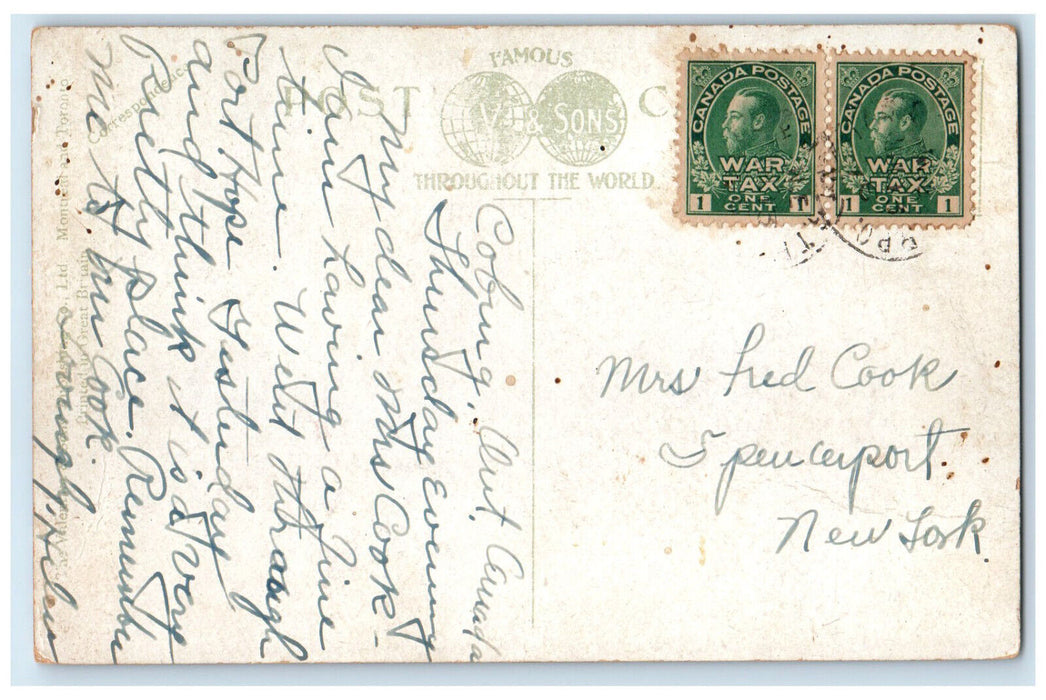 FAMOUS
POST C
V & SONS
THROUGHOUT THE WORLD.
CANADA POSTAGE
WAR
TAX
1 ONE CENT 1
CANADA POSTAGE
WAR
TAX
1 ONE CENT 1
G.P.O.
Coburg, Ont. Canada
Thursday Evening
My dear Mrs Cook-
I am having a fine
time. Went through
Port Hope Yesterday
and think it is a very
Pretty place. Remember
me to Mr Cook.
Lovingly, Helen
Mrs Fred Cook
Spencerport.
New York
Correspondence
Ltd Montreal Toronto
Printed in Great Britain